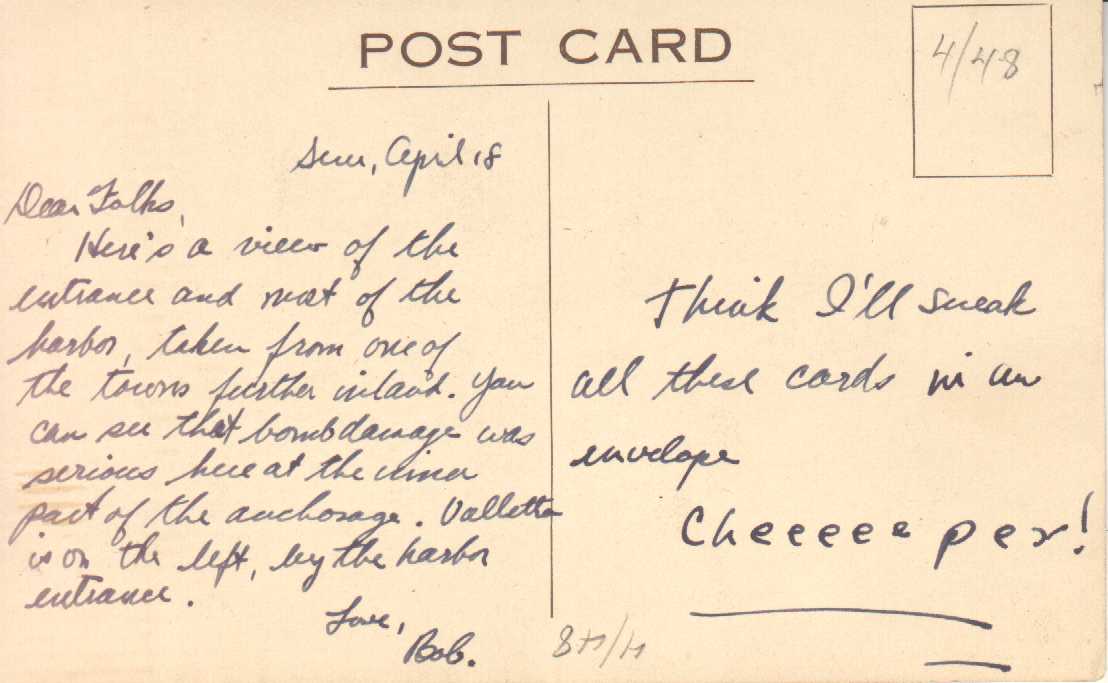 POST CARD
4/48
Sun, April 18
Dear Folks,
Here's a view of the
entrance and most of the
harbor, taken from one of
the towns further inland. You
can see that bomb damage was
serious here at the inner
part of the anchorage. Valletta
is on the left, by the harbor
entrance.
Love,
Bob.
Think I'll sneak
all these cards in an
envelope
Cheeeeeper!
4/48